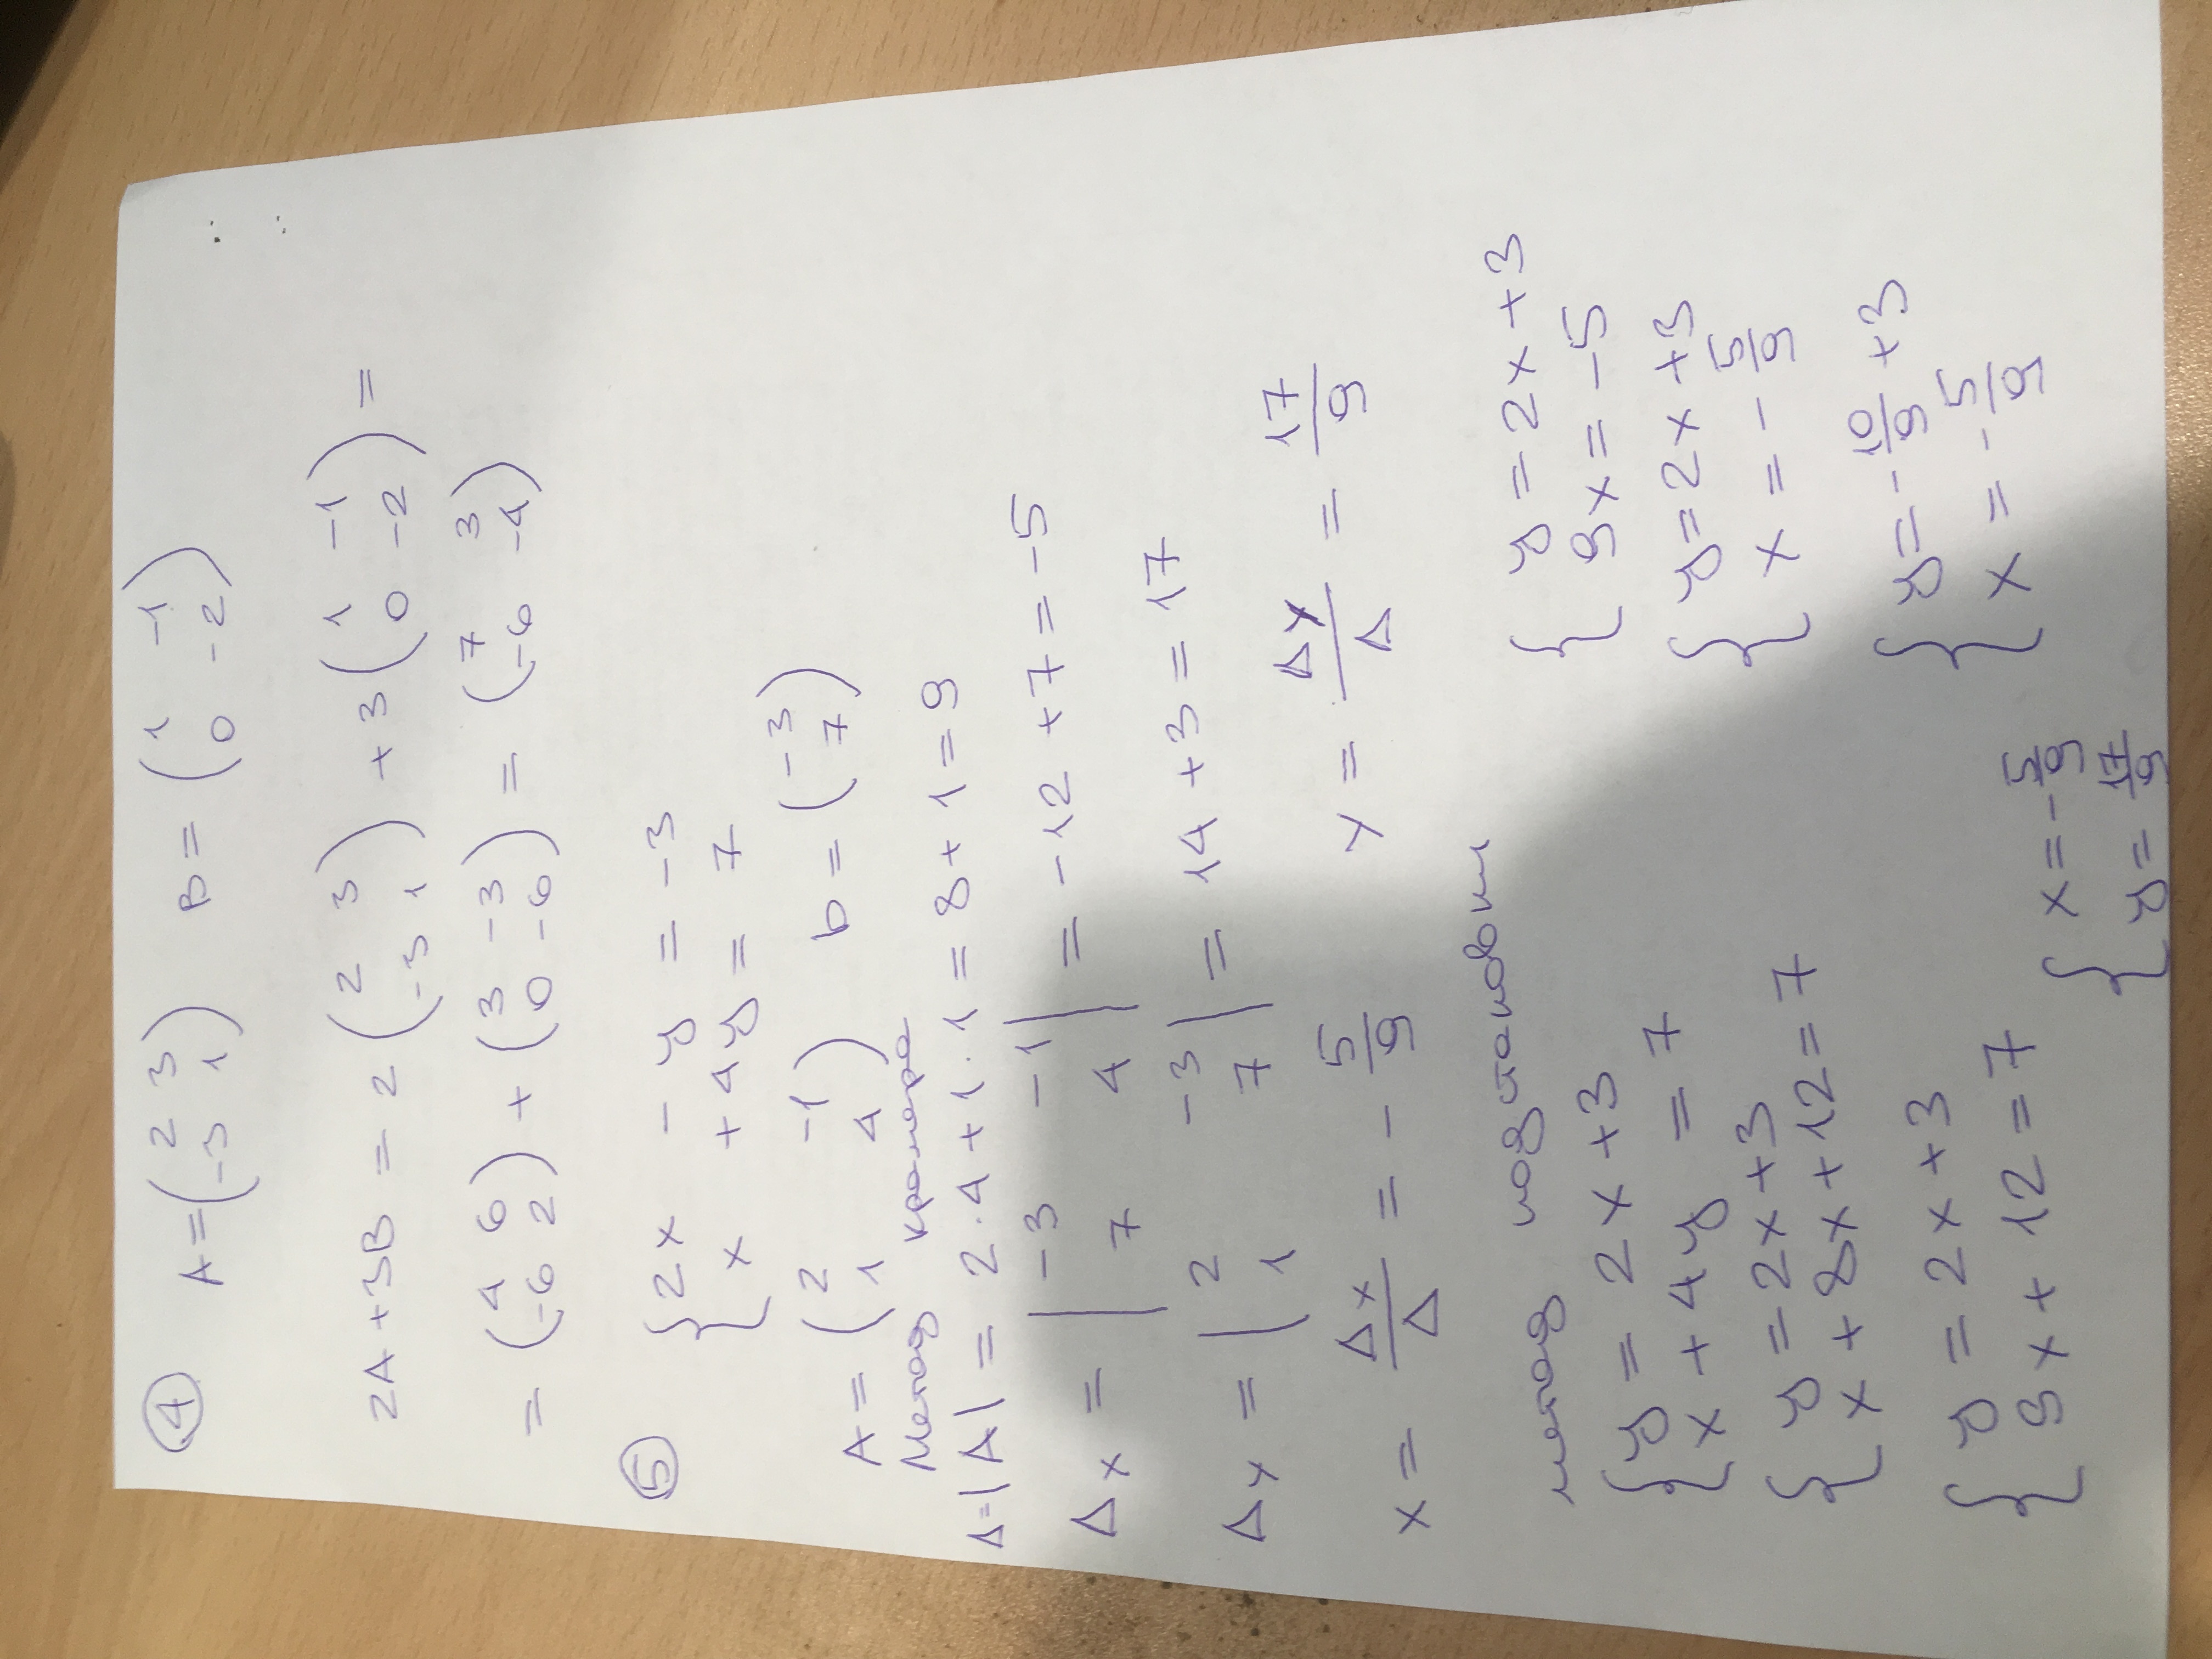 ④ A = (2 3 B = (1 -1
-3 1) 0 -2)
2A + 3B = 2 (2 3 + 3 (1 -1 =
-3 1) 0 -2)
= (4 6 + (3 -3 = (7 3
-6 2) 0 -6) -6 -4)
⑤ {2x - y = -3
x + 4y = 7
A = (2 -1 b = (-3
1 4) 7)
Метод крамера
Δ = |A| = 2·4 + 1·1 = 8 + 1 = 9
Δx = |-3 -1
7 4| = -12 + 7 = -5
Δy = |2 -3
1 7| = 14 + 3 = 17
x = Δx/Δ = -5/9 y = Δy/Δ = 17/9
метод подстановки
{y = 2x + 3
x + 4y = 7
{y = 2x + 3
x + 8x + 12 = 7
{y = 2x + 3
9x + 12 = 7
{y = 2x + 3
9x = -5
{y = 2x + 3
x = -5/9
{y = -10/9 + 3
x = -5/9
{x = -5/9
y = 17/9